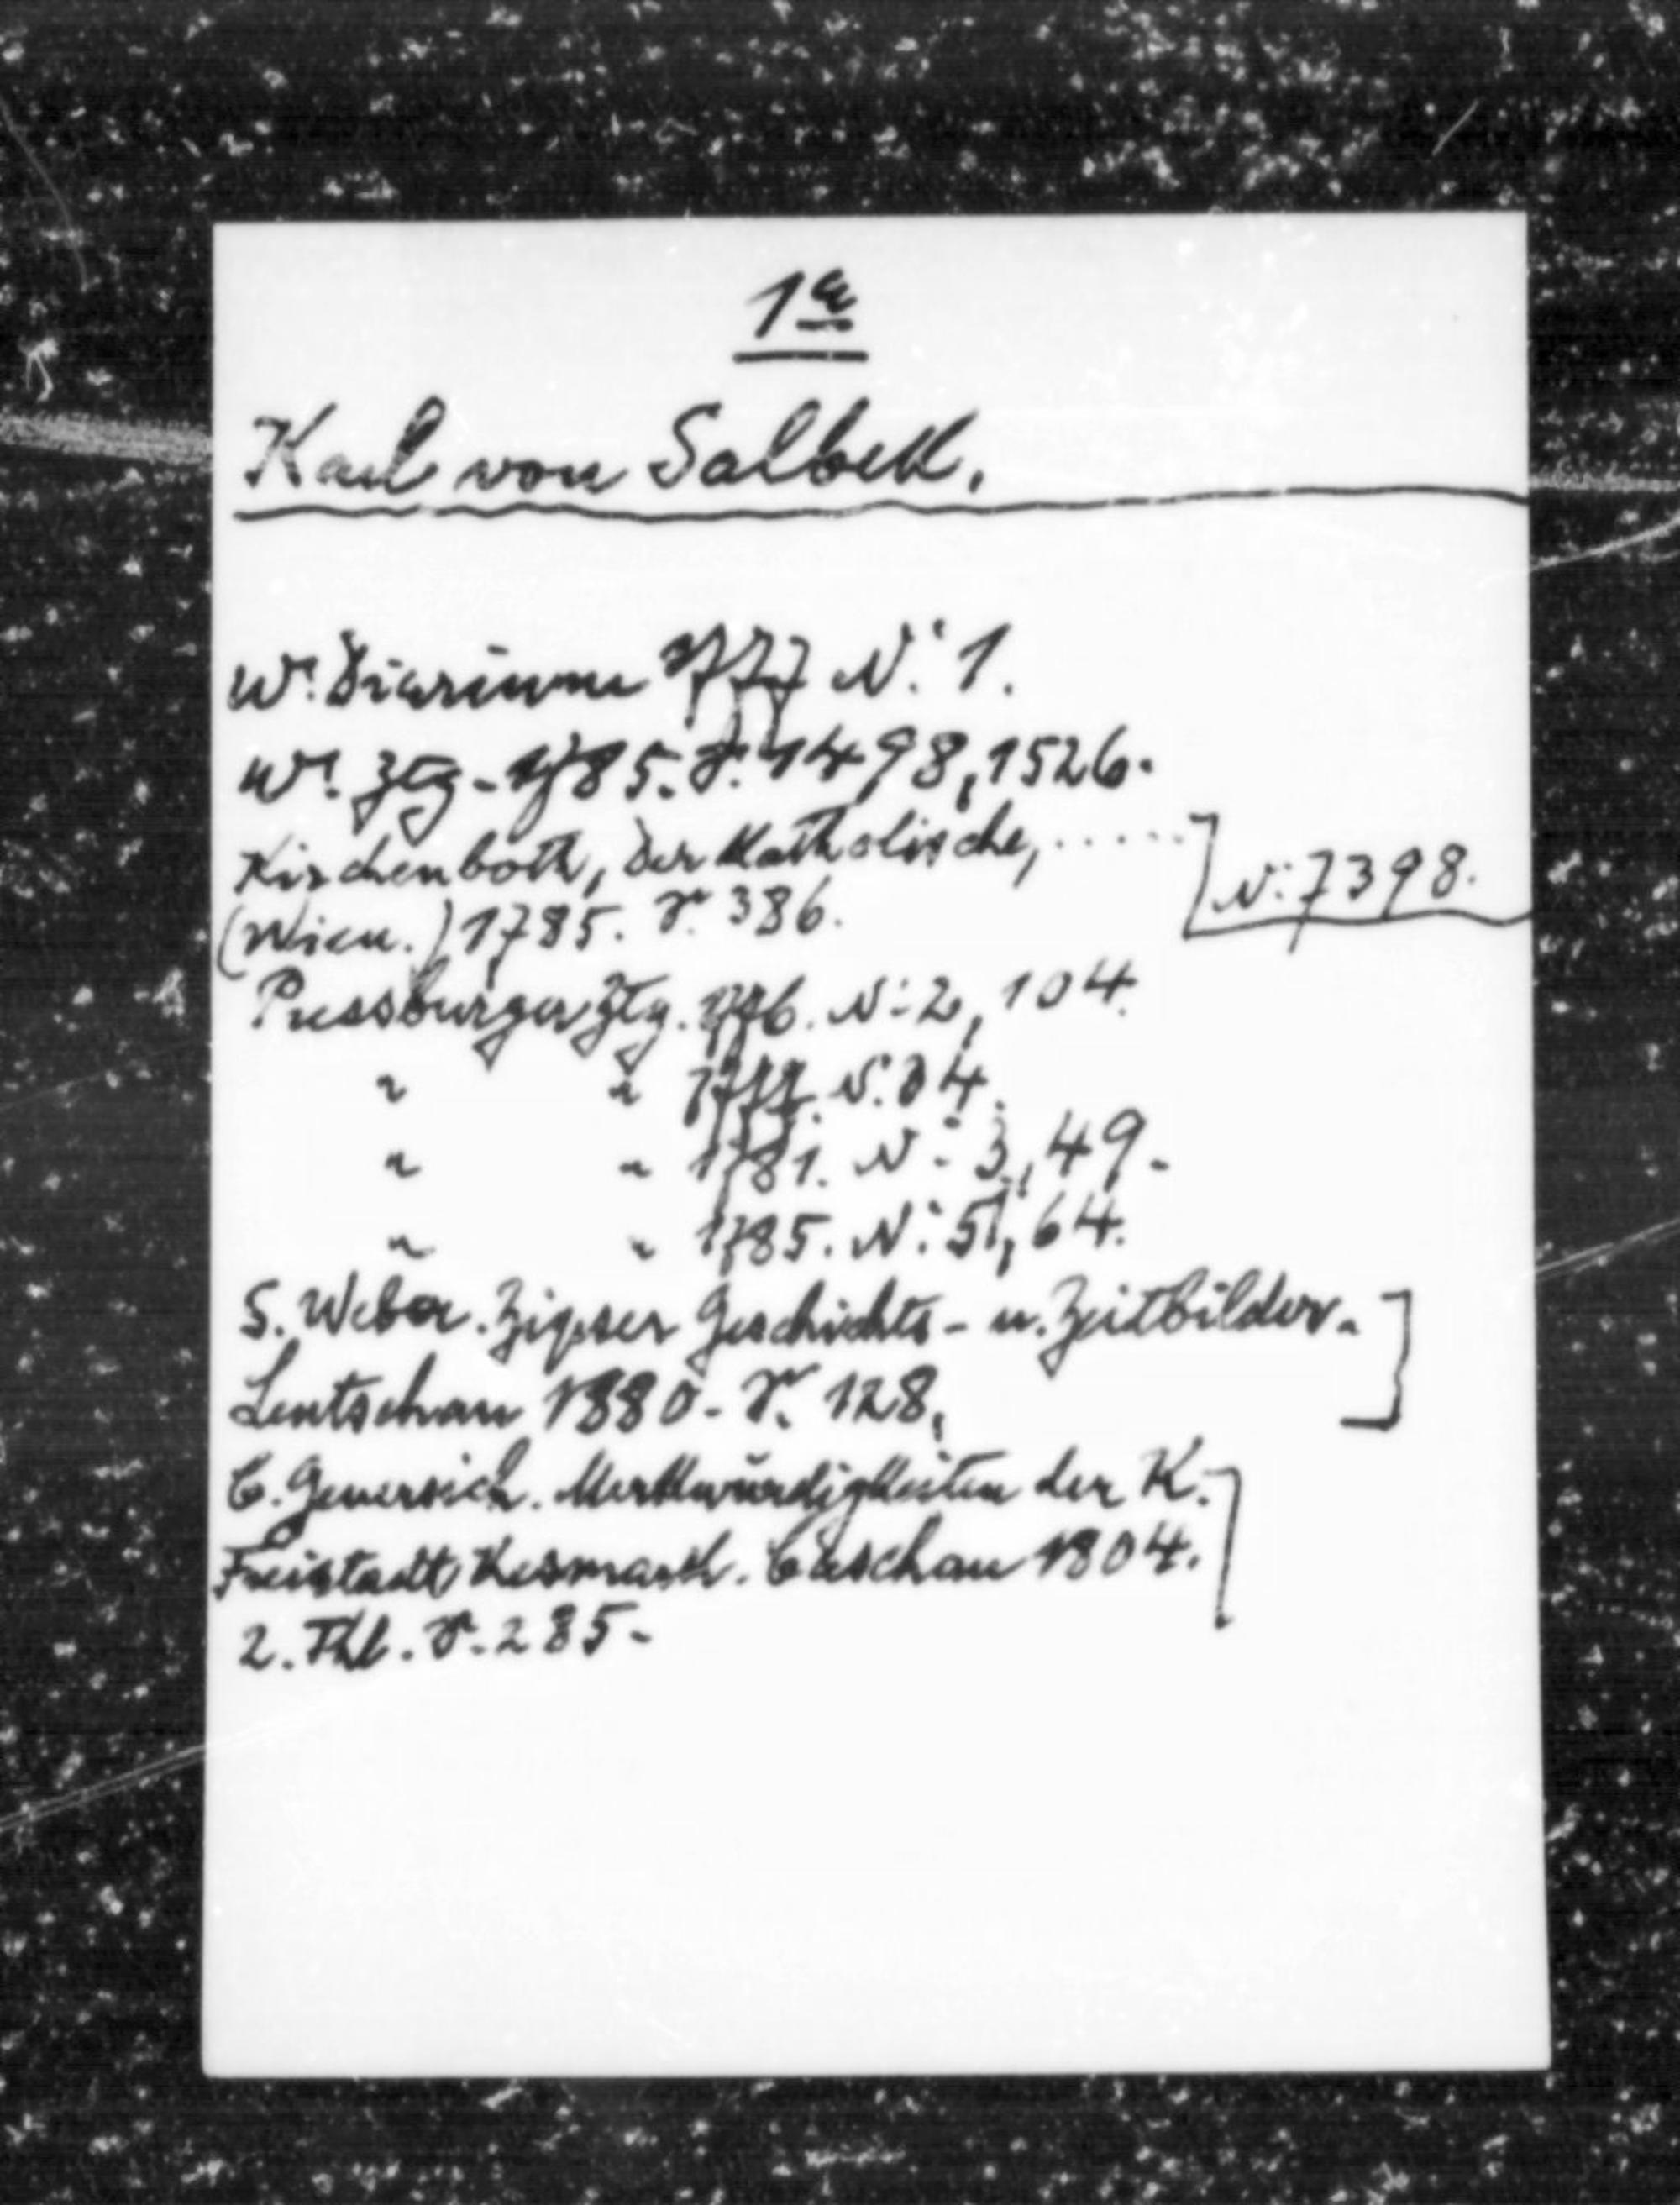 1a
Karl von Salbek.
Wr. Diarium 1777 N: 1.
Wr. Ztg. 1785. S. 1498, 1526.
Kirchenboth, der katholische, .....
N: 7398.
(Wien.) 1785. S. 386.
Pressburger Ztg. 1776. N: 2, 104.
" " 1777. N:
" " 1781. N: 3, 49.
" " 1785. N: 51, 64.
S. Weber. Zipser Geschichts- u. Zeitbilder.
Leutschau 1880. S. 128.
C. Genersich. Merkwürdigkeiten der K.
Freistadt Kesmark. Caschau 1804.
2. Thl. S. 285.